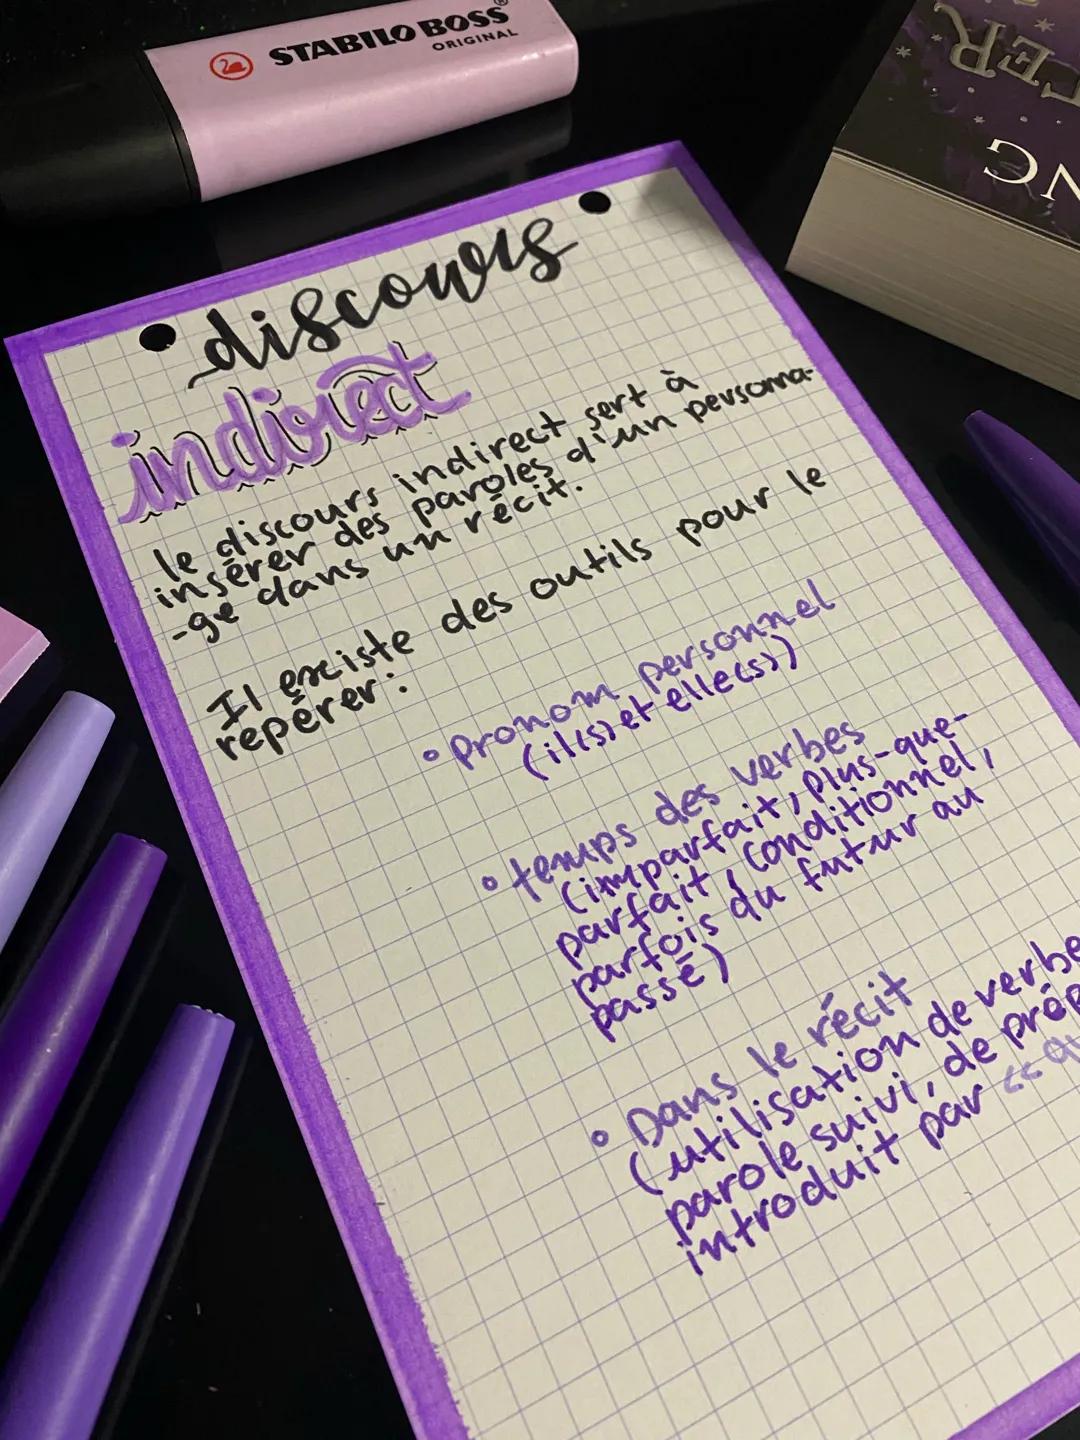 STABILO BOSS
ORIGINAL
TER
NG
discours
indirect
le discours indirect sert à
insérer des paroles d'un personna-
-ge dans un récit.
Il existe des outils pour le
repérer :
• pronom personnel
(il(s) et elle(s))
• temps des verbes
(imparfait, plus-que-
parfait, conditionnel,
parfois du futur au
passé)
• Dans le récit
(utilisation de verbe
parole suivi, de prép
introduit par << qu